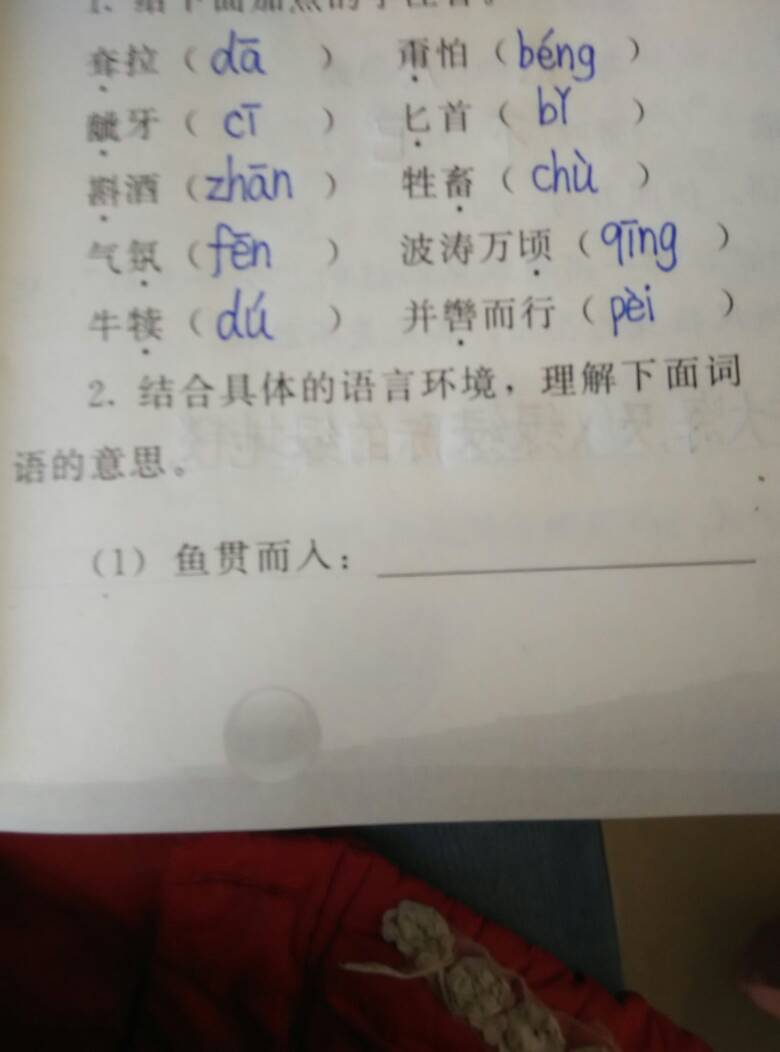 1. 给下面加点的字注音。
耷拉（dā） 甭怕（béng）
龇牙（cī） 匕首（bǐ）
斟酒（zhān） 牲畜（chù）
气氛（fēn） 波涛万顷（qīng）
牛犊（dú） 并辔而行（pèi）
2. 结合具体的语言环境，理解下面词
语的意思。
（1）鱼贯而入：